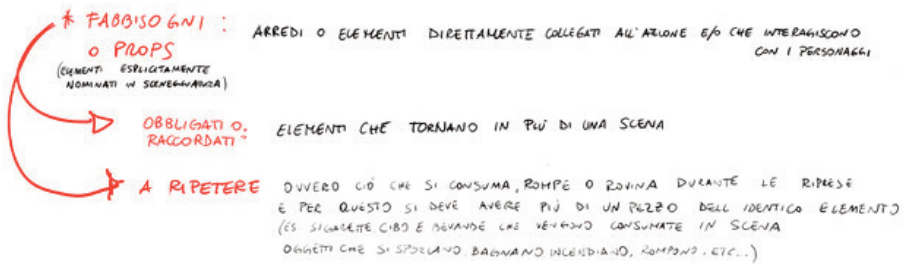 * FABBISOGNI :
O PROPS
(ELEMENTI ESPLICITAMENTE
NOMINATI IN SCENEGGIATURA)
ARREDI O ELEMENTI DIRETTAMENTE COLLEGATI ALL'AZIONE E/O CHE INTERAGISCONO
CON I PERSONAGGI
OBBLIGATI O
RACCORDATI
ELEMENTI CHE TORNANO IN PIÙ DI UNA SCENA
A RIPETERE
OVVERO CIÒ CHE SI CONSUMA, ROMPE O ROVINA DURANTE LE RIPRESE
E PER QUESTO SI DEVE AVERE PIÙ DI UN PEZZO DELL'IDENTICO ELEMENTO
(ES SIGARETTE CIBO E BEVANDE CHE VENGONO CONSUMATE IN SCENA
OGGETTI CHE SI SPORCANO, BAGNANO, INCENDIANO, ROMPONO, ETC..)